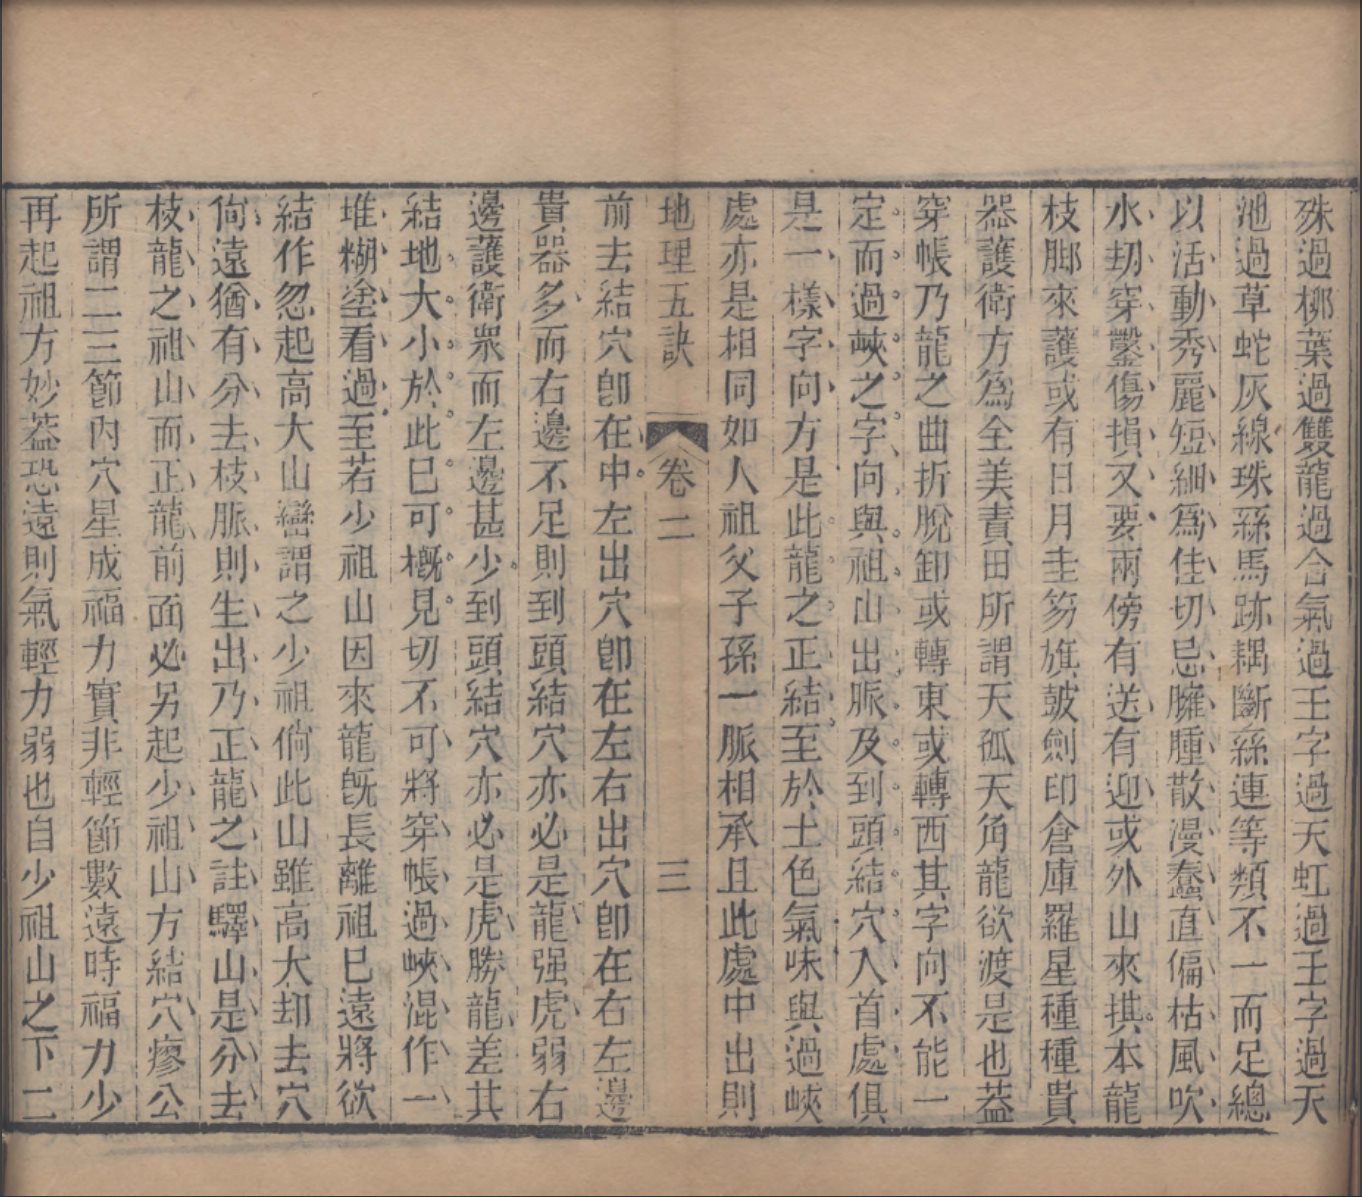 殊過柳葉過雙龍過合氣過王字過天虹過玉字過天
池過草蛇灰線珠絲馬跡耦斷絲連等類不一而足總
以活動秀麗短細爲佳切忌臃腫散漫蠢直偏枯風吹
水刧穿鑿傷損又要兩傍有送有迎或外山來拱本龍
枝脚來護或有日月圭笏旗皷劍印倉庫羅星種種貴
器護衛方爲全美責田所謂天孤天角龍欲渡是也葢
穿帳乃龍之曲折脫卸或轉東或轉西其字向不能一
定而過峽之字向與祖山出脈及到頭結穴入首處俱
是一樣字向方是此龍之正結至於土色氣味與過峽
處亦是相同如人祖父子孫一脈相承且此處中出則
地理五訣 卷二 三
前去結穴卽在中左出穴卽在左右出穴卽在右左邊
貴器多而右邊不足則到頭結穴亦必是龍强虎弱右
邊護衛眾而左邊甚少到頭結穴亦必是虎勝龍差其
結地大小於此巳可槪見切不可將穿帳過峽混作一
堆糊塗看過至若少祖山因來龍旣長離祖巳遠將欲
結作忽起高大山巒謂之少祖倘此山雖高大却去穴
尙遠猶有分去枝脈則生出乃正龍之註驛山是分去
枝龍之祖山而正龍前面必另起少祖山方結穴廖公
所謂二三節內穴星成福力實非輕節數遠時福力少
再起祖方妙葢恐遠則氣輕力弱也自少祖山之下二